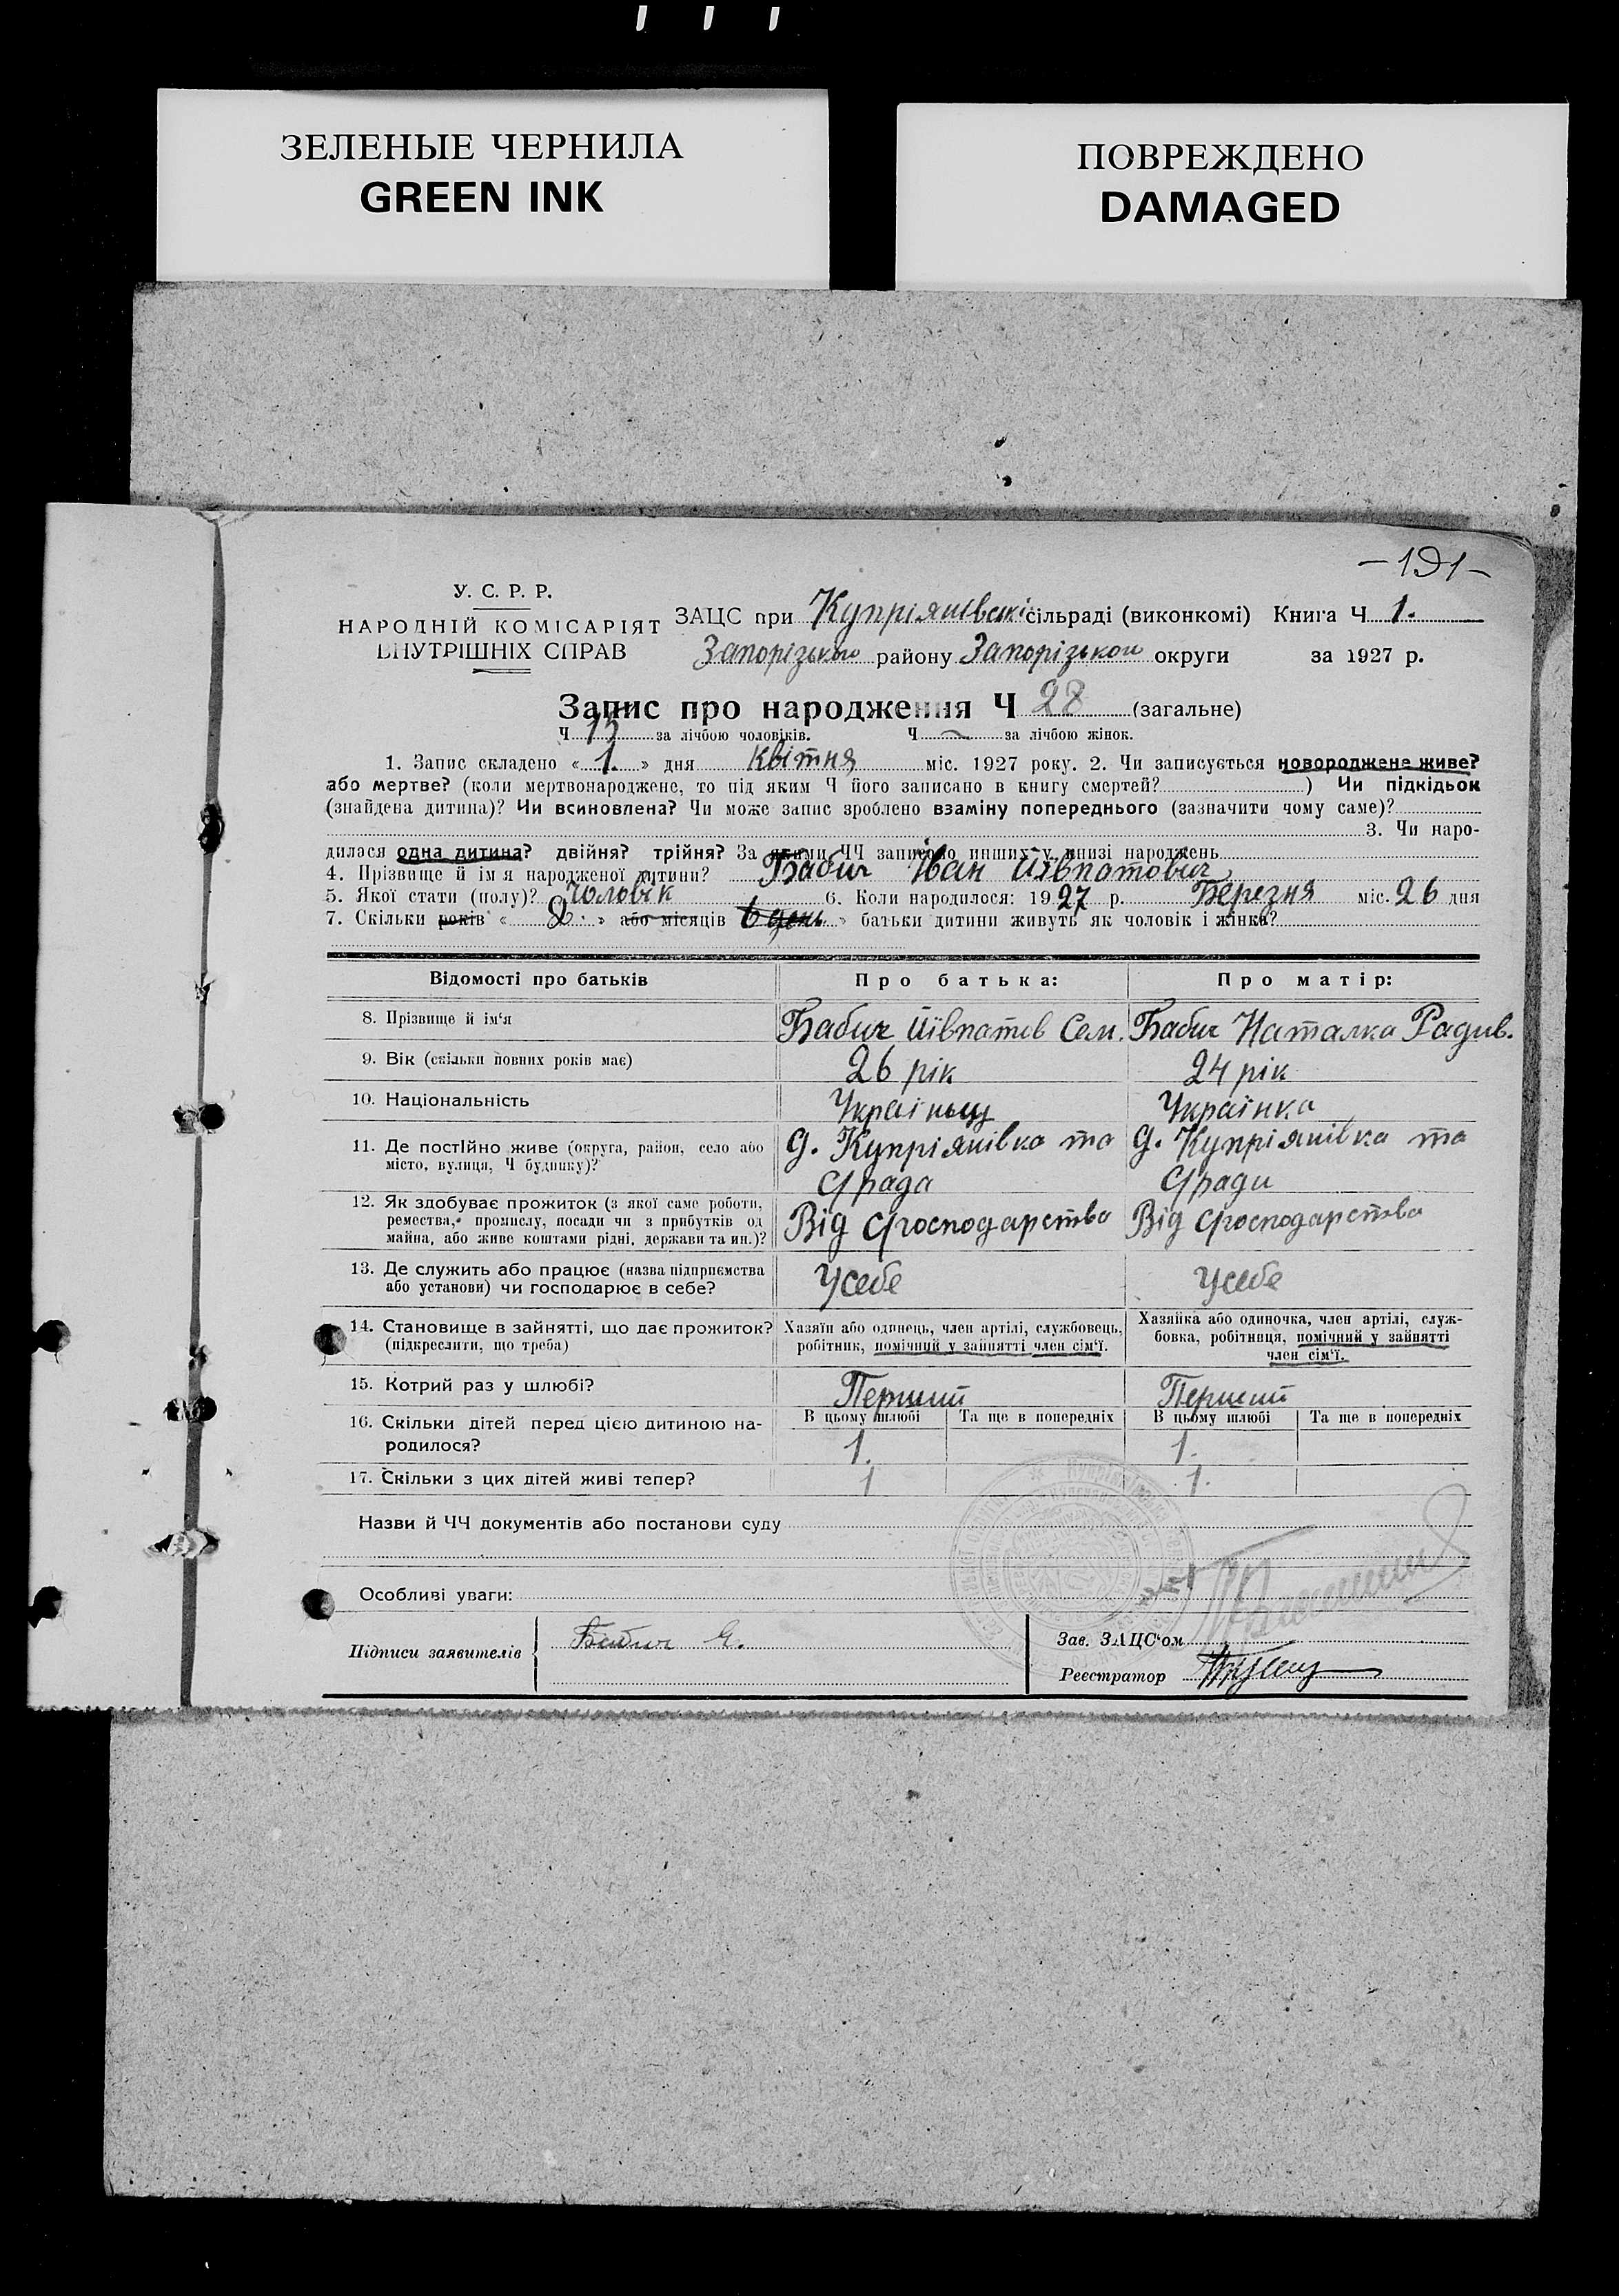 ЗЕЛЕНЫЕ ЧЕРНИЛА
GREEN INK
ПОВРЕЖДЕНО
DAMAGED
-191-
У. С. Р. Р.
НАРОДНІЙ КОМІСАРІЯТ
ВНУТРІШНІХ СПРАВ
ЗАЦС при Купріянівські сільраді (виконкомі) Книга Ч 1.
Запорізького району Запорізькои округи за 1927 р.
Запис про народження Ч 28 (загальне)
Ч 15 за лічбою чоловіків. Ч ~ за лічбою жінок.
1. Запис складено « 1. » дня Квітня міс. 1927 року. 2. Чи записується новороджене живе?
або мертве? (коли мертвонароджене, то під яким Ч його записано в книгу смертей? ) Чи підкідьок
(знайдена дитина)? Чи всиновлена? Чи може запис зроблено взаміну попереднього (зазначити чому саме)?
3. Чи наро-
дилася одна дитина? двійня? трійня? За якими ЧЧ записано инших у книзі народжень
4. Прізвище й ім'я народженої дитини? Бабич Іван Йівпатович
5. Якої стати (полу)? Чоловік 6. Коли народилося: 1927 р. Березня міс. 26 дня
7. Скільки років « 2. » або місяців 6 день » батьки дитини живуть як чоловік і жінка?
Відомості про батьків Про батька: Про матір:
8. Прізвище й ім'я Бабич Йівпатов Сем. Бабич Наталка Радив.
9. Вік (скільки повних років має) 26 рік 24 рік
10. Національність Українць Українка
11. Де постійно живе (округа, район, село або місто, вулиця, Ч будинку)? Купріянівка та Купріянівка та
12. Як здобуває прожиток (з якої саме роботи,
ремества, промислу, посади чи з прибутків од
майна, або живе коштами рідні, держави та ин.)? Від Сгосподарства Від Сгосподарства
13. Де служить або працює (назва підприємства
або установи) чи господарює в себе? Усебе Усебе
14. Становище в зайнятті, що дає прожиток?
(підкреслити, що треба)
Хазяїн або одинець, член артілі, службовець,
робітник, помічний у зайнятті член сім'ї.
Хазяйка або одиночка, член артілі, служ-
бовка, робітниця, помічний у зайнятті
член сім'ї.
15. Котрий раз у шлюбі? Перший Перший
В цьому шлюбі Та ще в попередніх В цьому шлюбі Та ще в попередніх
16. Скільки дітей перед цією дитиною на-
родилося? 1. 1.
17. Скільки з цих дітей живі тепер? 1 1.
Назви й ЧЧ документів або постанови суду
Особливі уваги:
Підписи заявителів Бабич Є.
Зав. ЗАЦС'ом
Реєстратор